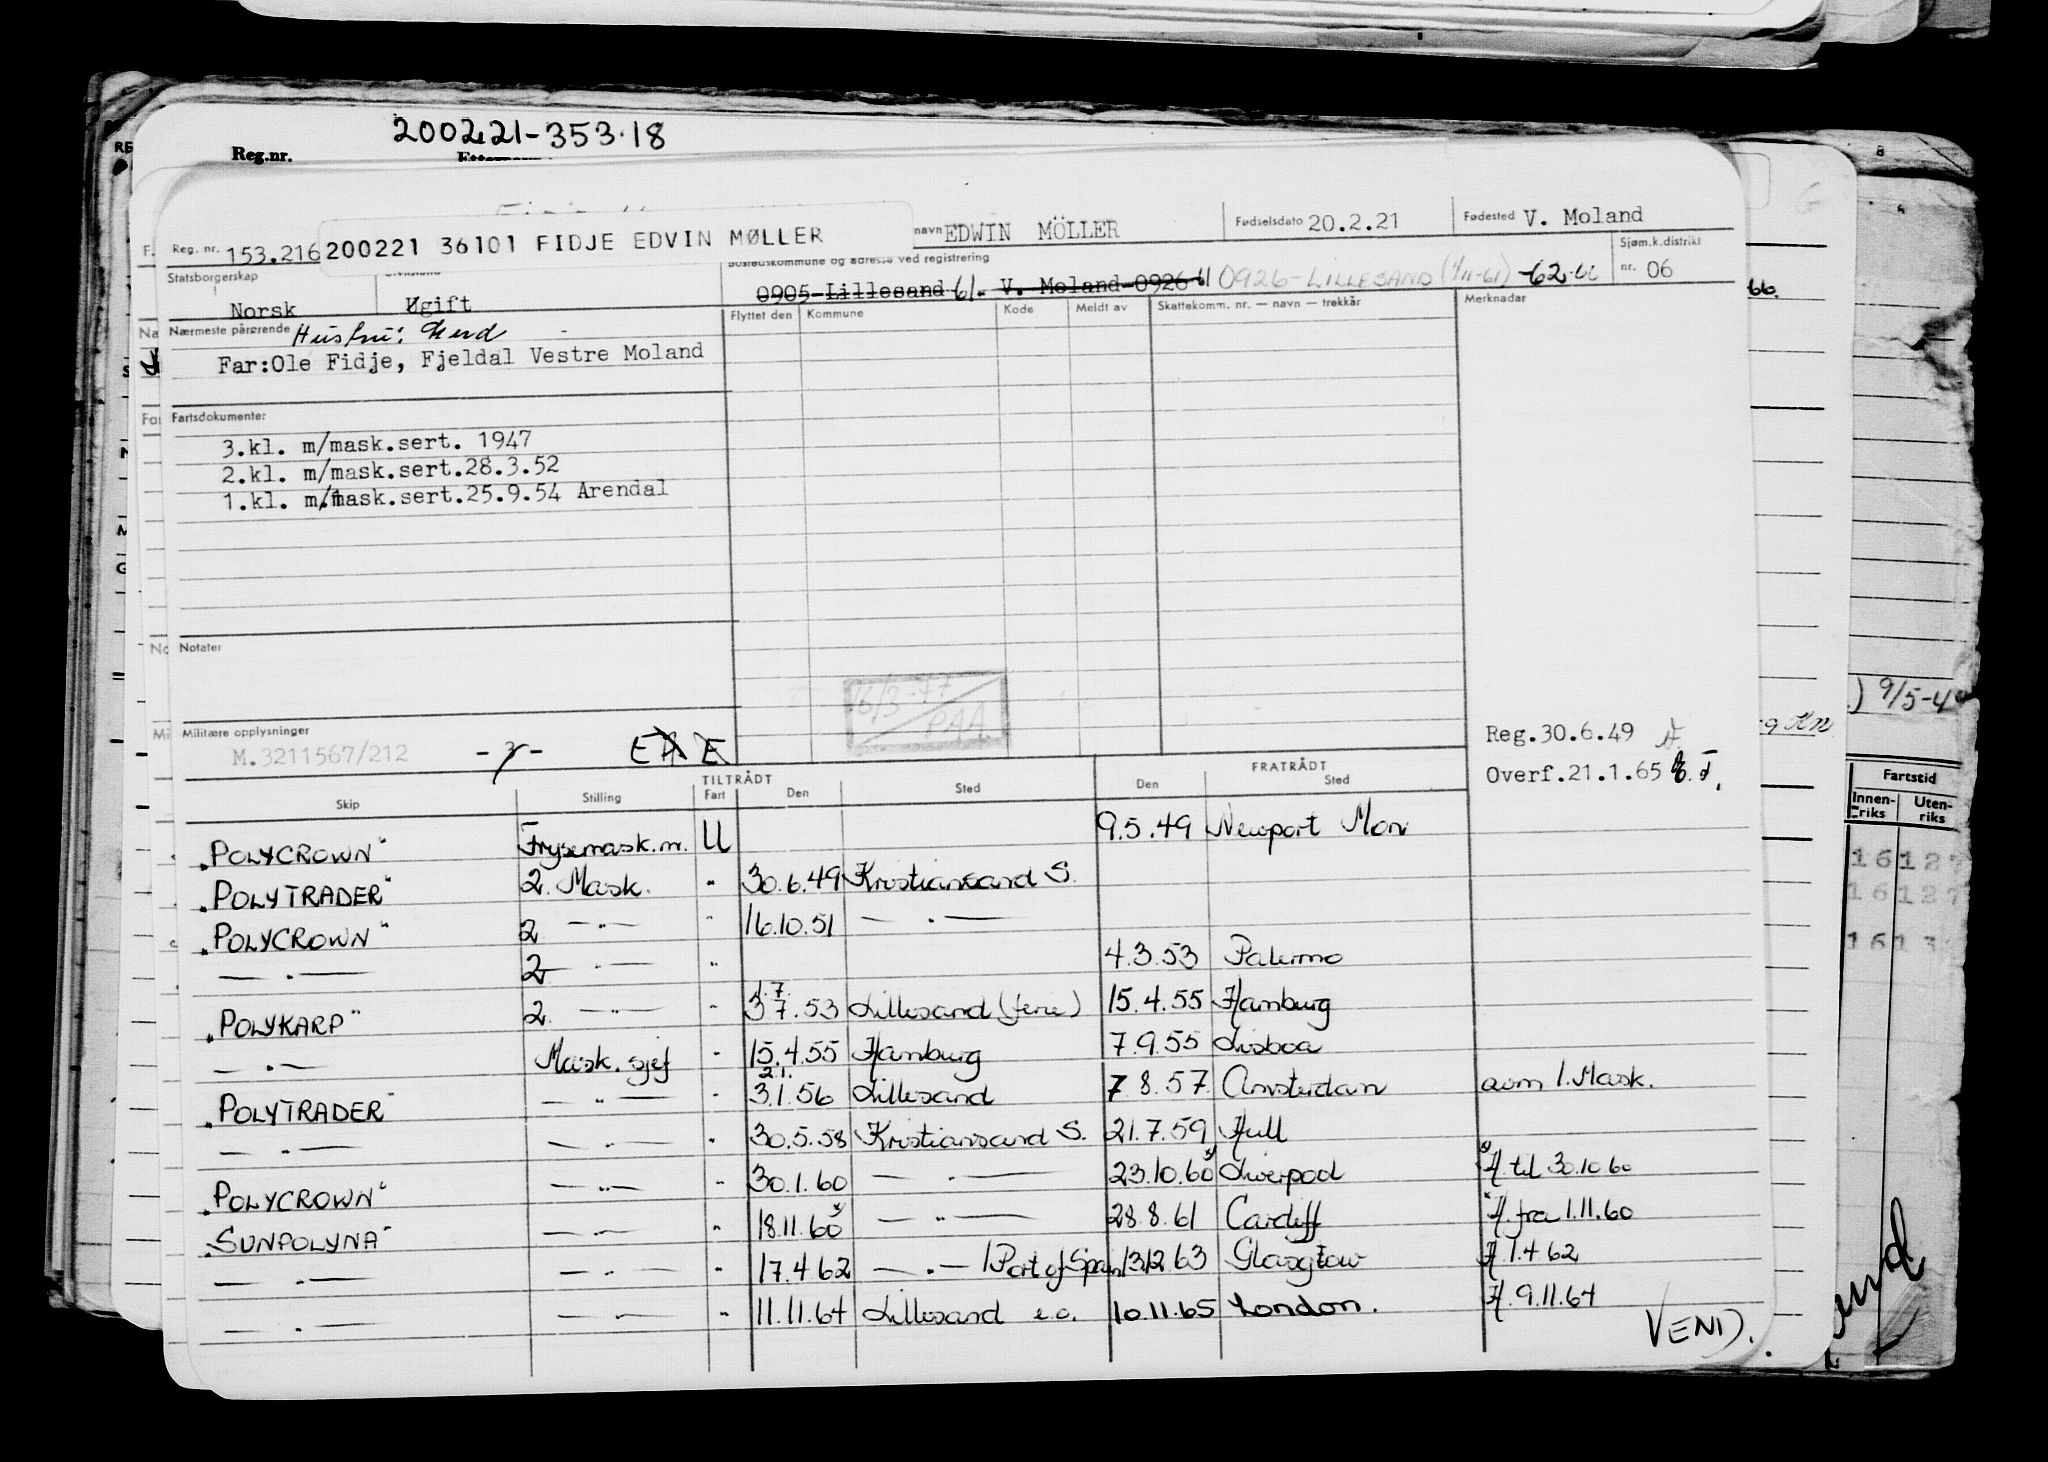 200221-353.18
Reg.nr.
Reg. nr. 153.216 200221 36101 FIDJE EDVIN MØLLER navn EDWIN MÖLLER Fødselsdato 20.2.21 Fødested V. Moland
Statsborgerskap Norsk Ugift Bostedskommune og adresse ved registrering 0905-Lillesand 61. V. Moland-0926 61 0926-LILLESAND (1/11-61) -62-66 Sjøm.k.distrikt nr. 06
66.
Nærmeste pårørende Hustru:
Far:Ole Fidje, Fjeldal Vestre Moland
Flyttet den Kommune Kode Meldt av Skattekomm. nr. — navn — trekkår Merknader
Fartsdokumenter
3.kl. m/mask.sert. 1947
2.kl. m/mask.sert.28.3.52
1.kl. m/mask.sert.25.9.54 Arendal
Notater
16/3-77
PAA.
9/5-4
Militære opplysninger
M.3211567/212
Reg.30.6.49
Overf.21.1.65
TILTRÅDT FRATRÅDT
Skip Stilling Fart Den Sted Den Sted
Fartstid
Innen-riks Uten-riks
"POLYCROWN" Frysemask.m. U 9.5.49 Newport Mon
"POLYTRADER" 2. Mask. " 30.6.49 Kristiansand S.
"POLYCROWN" 2 — " — " 16.10.51 — " —
— " — 2 — " — " 4.3.53 Palermo
1.7.
"POLYKARP" 2. — " — " 3.7.53 Lillesand (ferie) 15.4.55 Hamburg
— " — Mask. sjef " 15.4.55 Hamburg 7.9.55 Lisboa
2.1.
"POLYTRADER" — " — " 3.1.56 Lillesand 7.8.57. Amsterdam som 1. Mask.
— " — — " — " 30.5.58 Kristiansand S. 21.7.59 Hull
"POLYCROWN" — " — " 30.1.60 — " — 23.10.60 x) Liverpool x) H. til 30.10.60
"SUNPOLYNA" — " — " 18.11.60 x — " — 28.8.61 Cardiff x H. fra 1.11.60
— " — — " — " 17.4.62 — " — / Port of Spain 13.12.63 Glasgow H 1.4.62
— " — — " — " 11.11.64 Lillesand e.o. 10.11.65 London. H. 9.11.64
VEND.